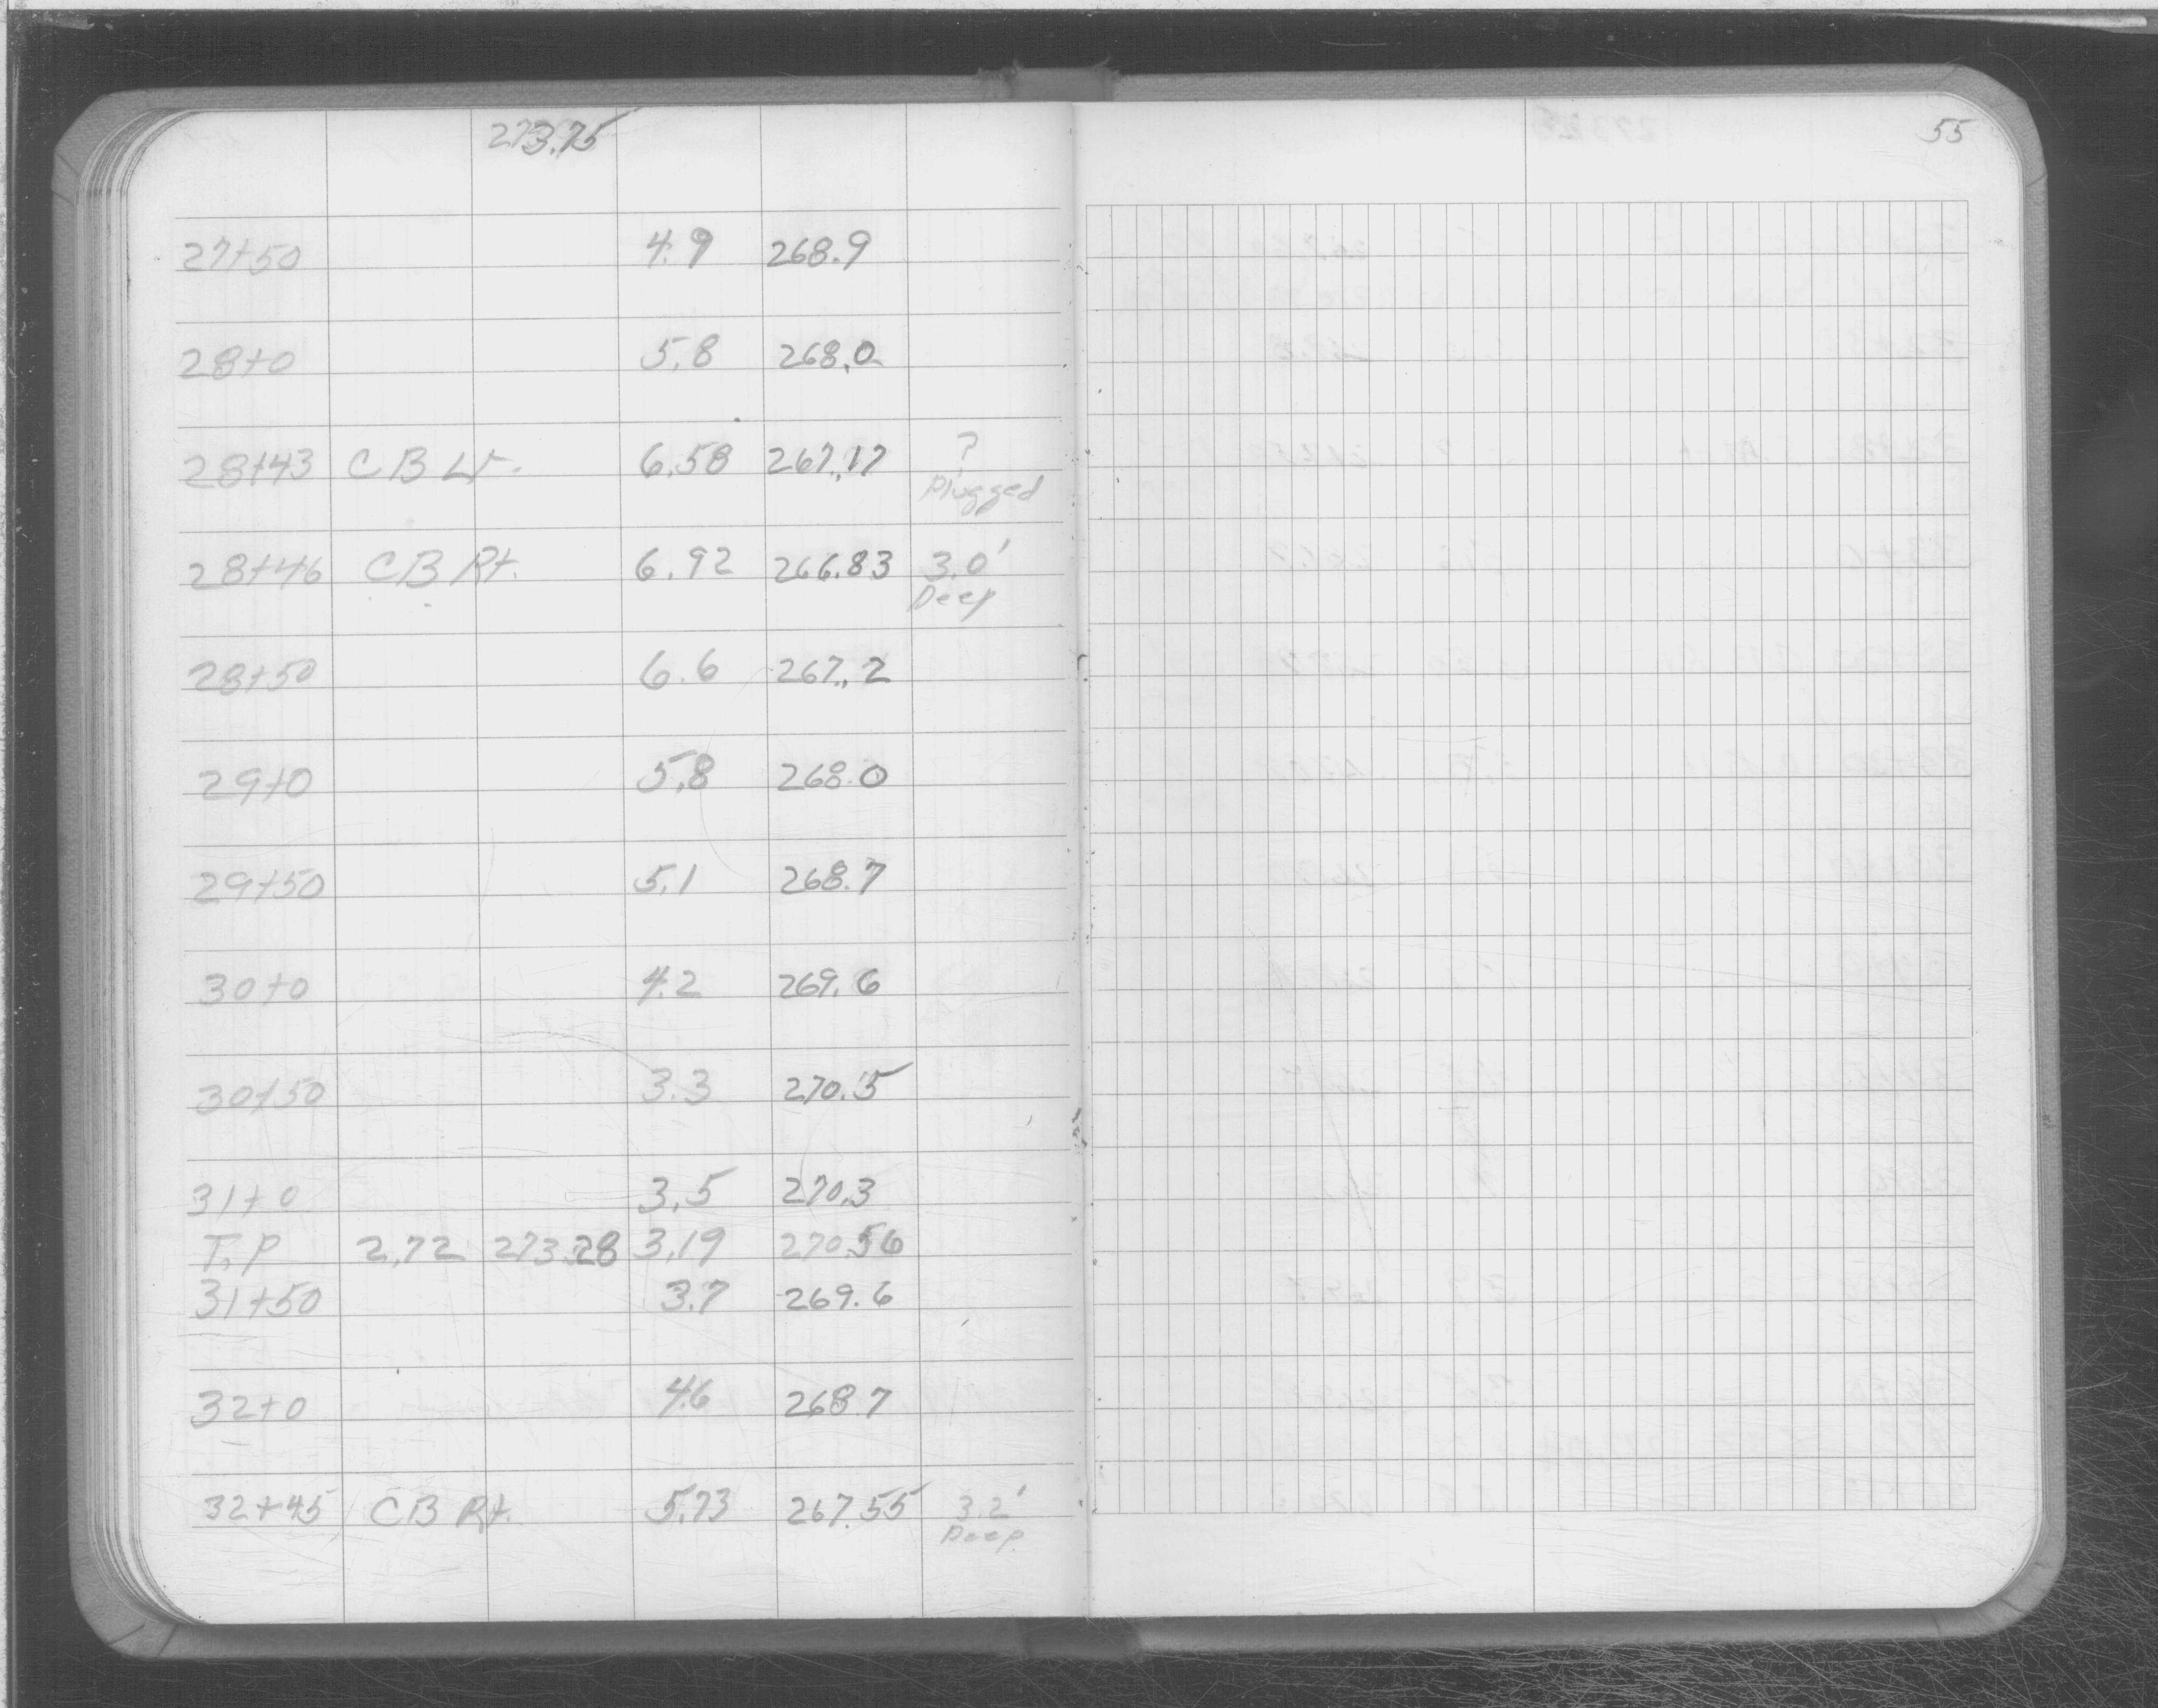 273.75
55
27+50 4.9 268.9
28+0 5.8 268.0
28+43 C B Lt. 6.58 267.17 ?
Plugged
28+46 C B Rt. 6.92 266.83 3.0'
Deep
28+50 6.6 267.2
29+0 5.8 268.0
29+50 5.1 268.7
30+0 4.2 269.6
30+50 3.3 270.5
31+0 3.5 270.3
T.P 2.72 273.28 3.19 270.56
31+50 3.7 269.6
32+0 4.6 268.7
32+45 C B Rt. 5.73 267.55 3.2'
Deep